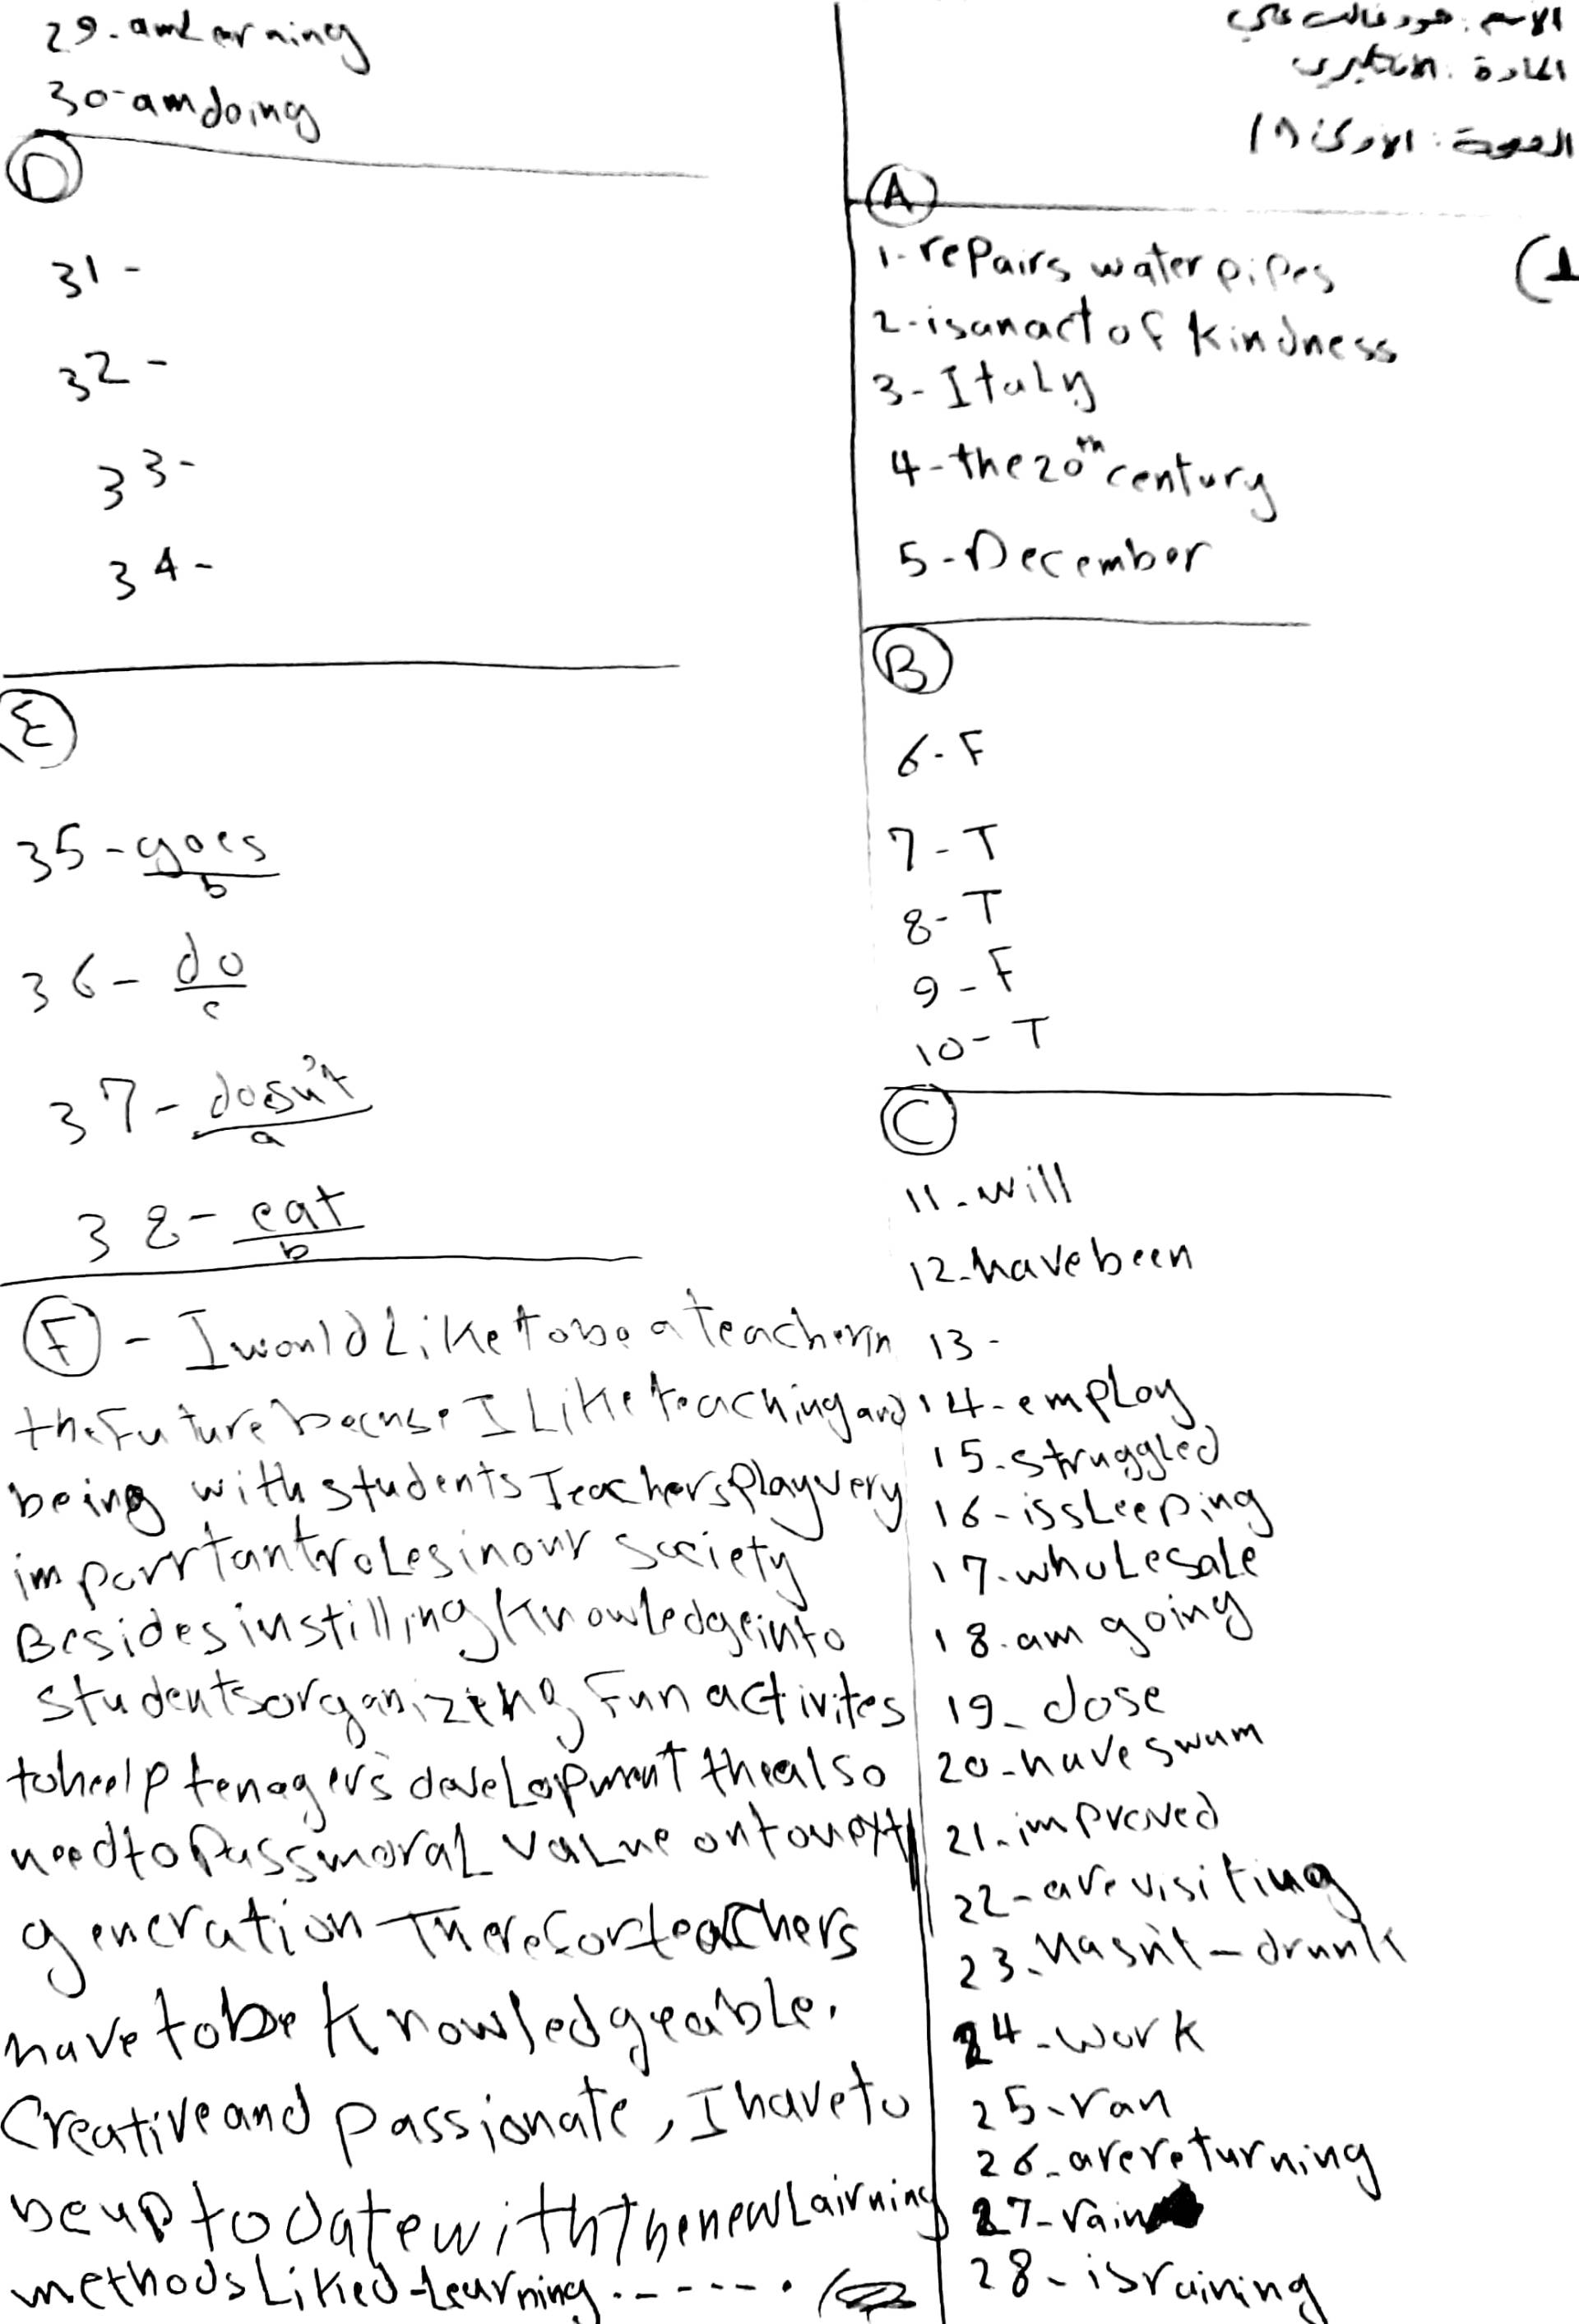 الاسم: فهد غالب علي
المادة: الانكليزي
(1
A
1-repairs water pipes
2-is an act of kindness
3-Italy
4-the 20th century
5-December
B
6-F
7-T
8-T
9-F
10-T
C
11-will
12-have been
13-
14-employ
15-struggled
16-is sleeping
17-wholesale
18-am going
19-dose
20-have swum
21-improved
22-are visiting
23-hasn't-drunk
24-work
25-ran
26-are returning
27-rain
28-is raining
29-am Lerning
30-am doing
D
31-
32-
33-
34-
E
35-goes
b
36-do
c
37-doesn't
a
38-eat
b
F - I would Like to be a teacher in
the Future because I Like teaching and
being with students Teachers Play very
important roles in our society
Besides instilling Knowledge into
students organizing Fun activites
to help tenagers development the also
need to Pass moral value onto next
generation Therefor teachers
have to be Knowledgeable.
Creative and passionate, I have to
be up to date with the new Lairning
methods Like d-Learning ......